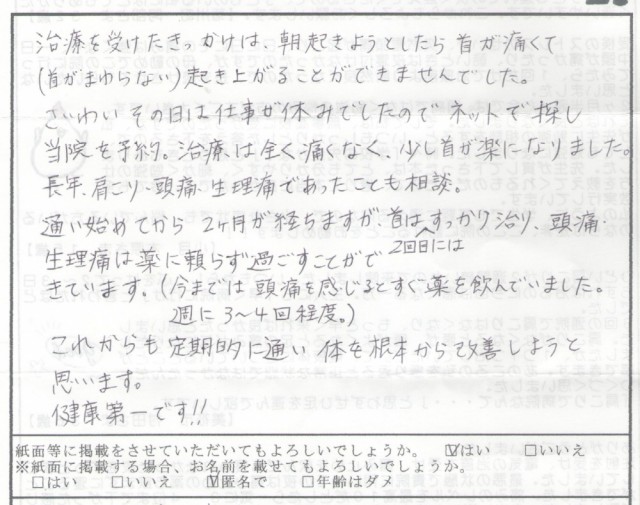 治療を受けたきっかけは、朝起きようとしたら首が痛くて
(首がまわらない)起き上がることができませんでした。
さいわいその日は仕事が休みでしたのでネットで探し
当院を予約。治療は全く痛くなく、少し首が楽になりました。
長年、肩こり・頭痛・生理痛であったことも相談。
通い始めてから2ヶ月が経ちますが、首は2回目にはすっかり治り、頭痛・
生理痛は薬に頼らず過ごすことがで
きています。(今までは頭痛を感じるとすぐ薬を飲んでいました。
週に3〜4回程度。)
これからも定期的に通い体を根本から改善しようと
思います。
健康第一です!!
紙面等に掲載をさせていただいてもよろしいでしょうか。 ☑はい □いいえ
※紙面に掲載する場合、お名前を載せてもよろしいでしょうか。
□はい □いいえ ☑匿名で □年齢はダメ